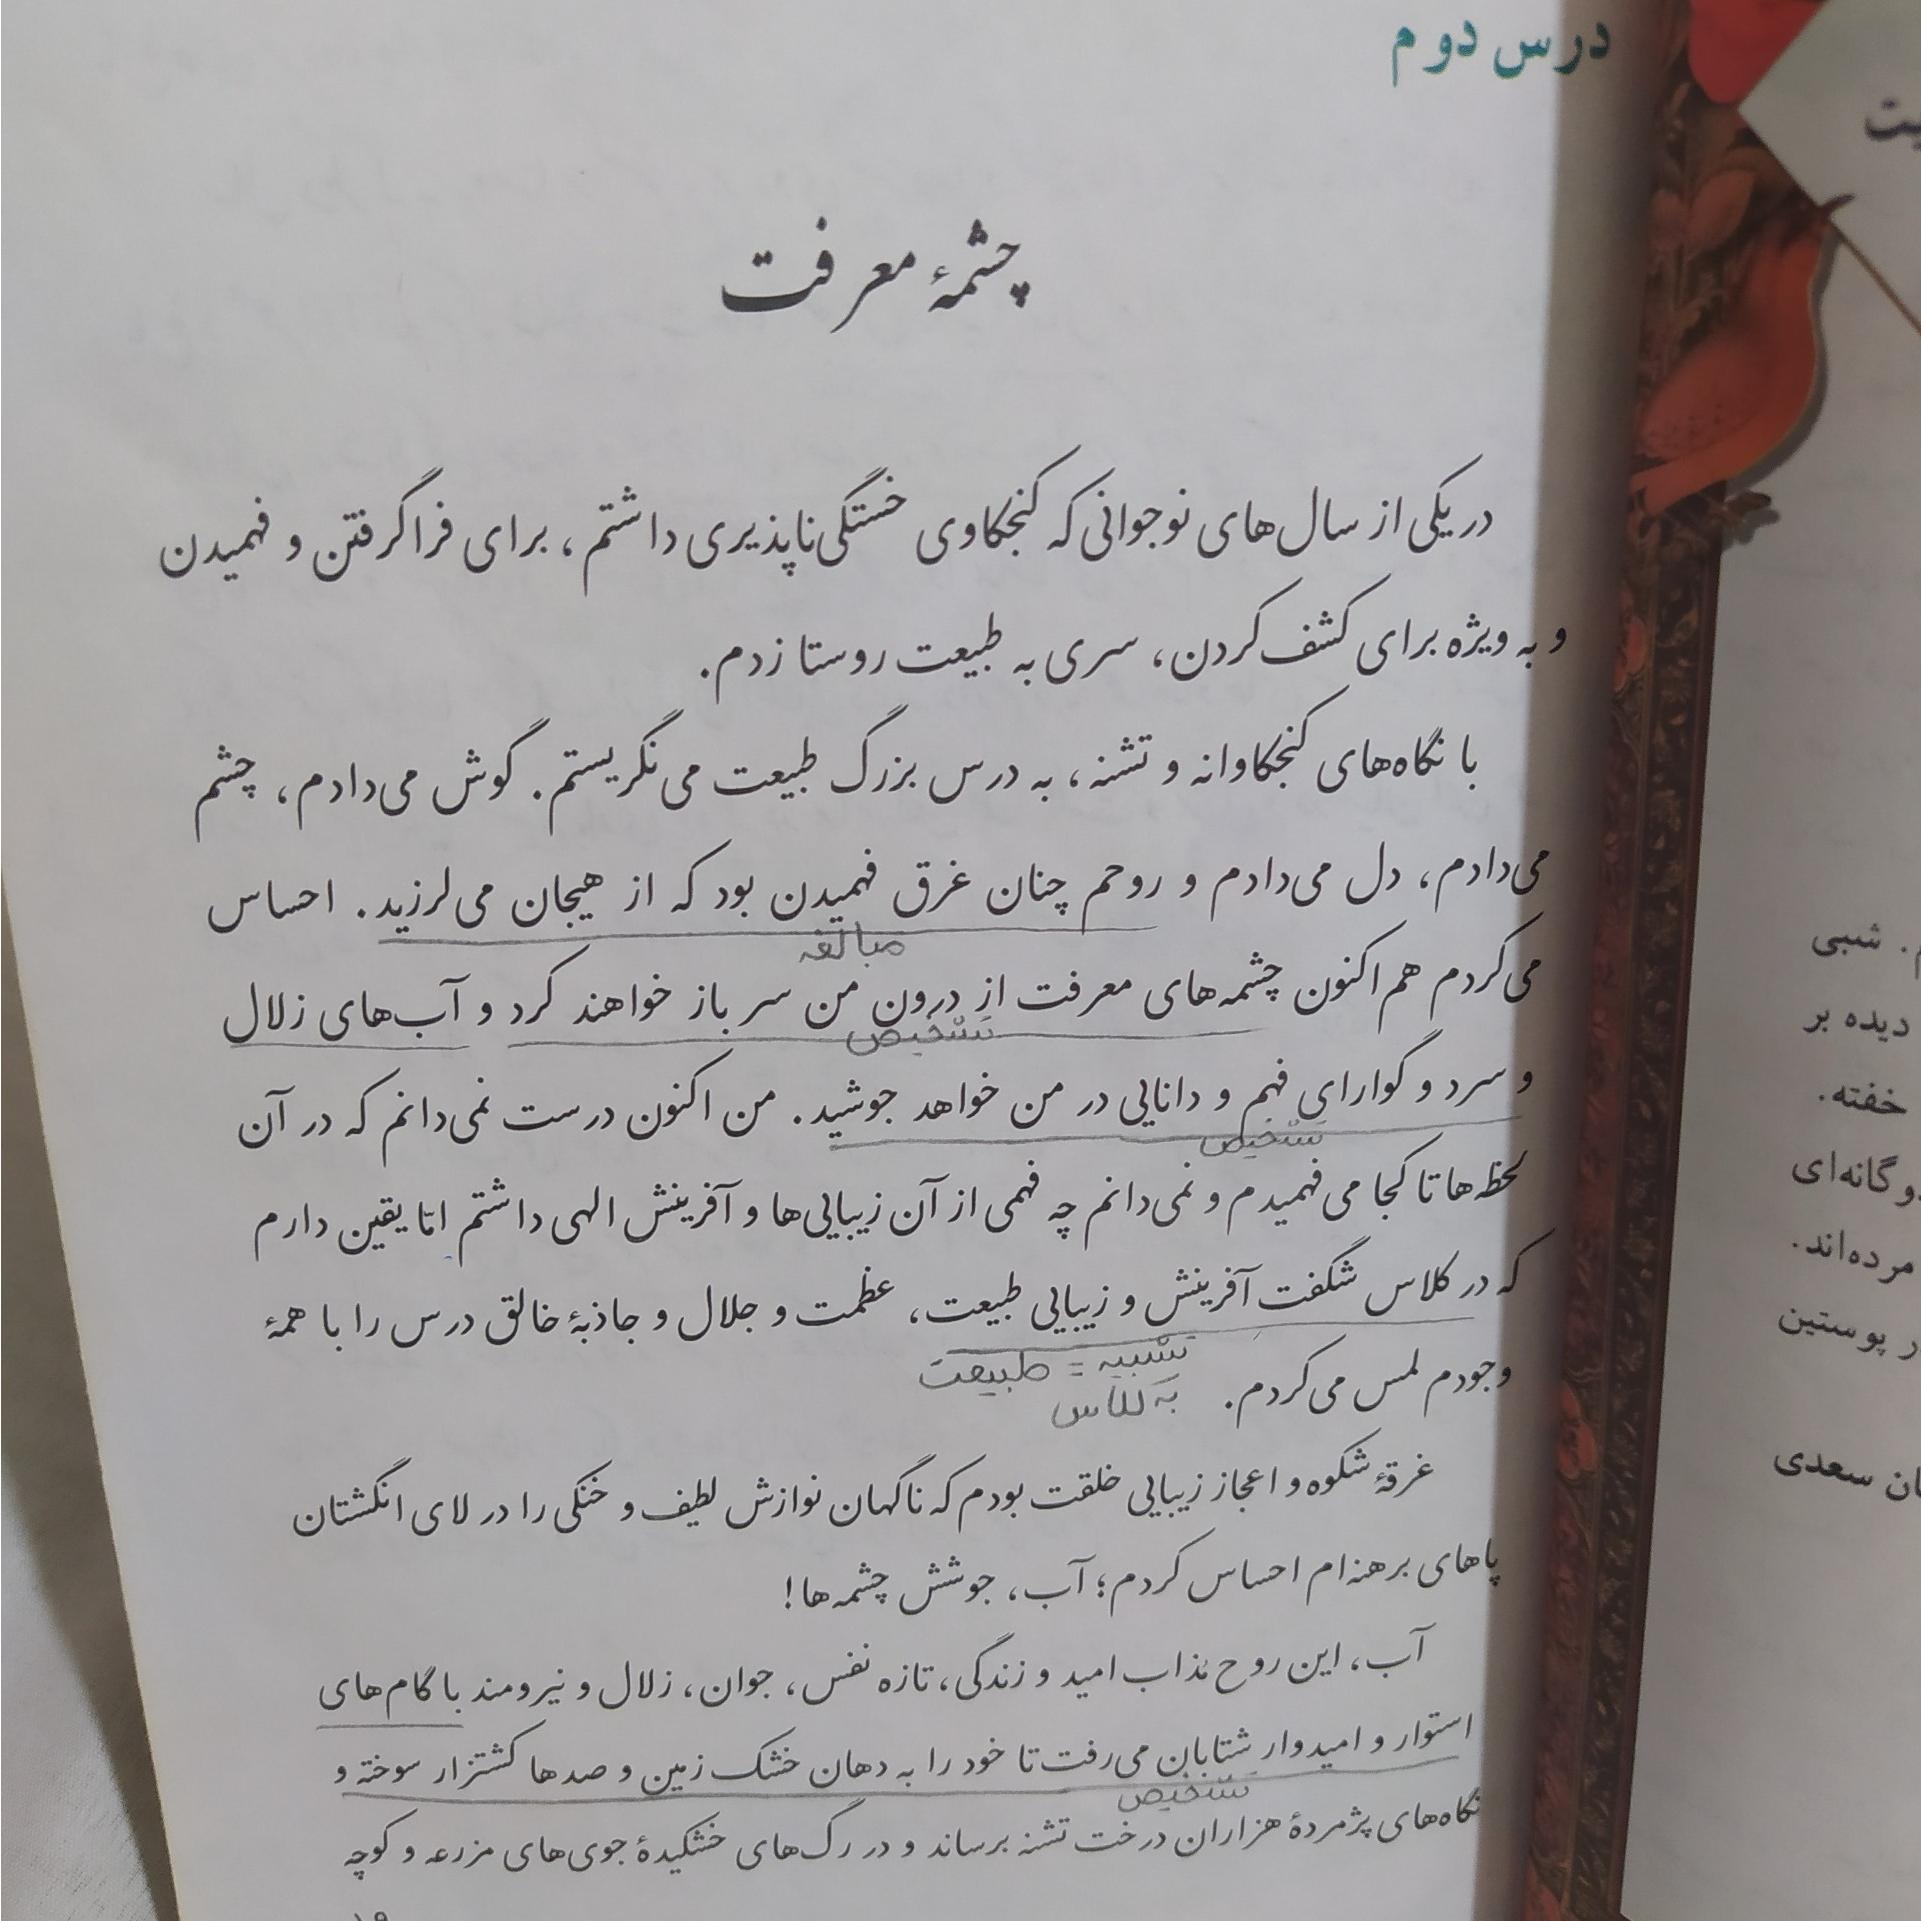 درس دوم
چشمهٔ معرفت
در یکی از سال‌های نوجوانی که کنجکاوی خستگی‌ناپذیری داشتم، برای فراگرفتن و فهمیدن
و به ویژه برای کشف کردن، سری به طبیعت روستا زدم.
با نگاه‌های کنجکاوانه و تشنه، به درس بزرگ طبیعت می‌نگریستم. گوش می‌دادم، چشم
می‌دادم، دل می‌دادم و روحم چنان غرق فهمیدن بود که از هیجان می‌لرزید. احساس
مبالغه
می‌کردم هم‌اکنون چشمه‌های معرفت از درون من سر باز خواهند کرد و آب‌های زلال
تشخیص
و سرد و گوارای فهم و دانایی در من خواهد جوشید. من اکنون درست نمی‌دانم که در آن
تشخیص
لحظه‌ها تا کجا می‌فهمیدم و نمی‌دانم چه فهمی از آن زیبایی‌ها و آفرینش الهی داشتم امّا یقین دارم
که در کلاس شگفت آفرینش و زیبایی طبیعت، عظمت و جلال و جاذبهٔ خالق درس را با همهٔ
تشبیه = طبیعت
وجودم لمس می‌کردم.
به کلاس
غرقهٔ شکوه و اعجاز زیبایی خلقت بودم که ناگهان نوازش لطیف و خنکی را در لای انگشتان
پاهای برهنه‌ام احساس کردم؛ آب، جوشش چشمه‌ها!
آب، این روح مُذاب امید و زندگی، تازه نفس، جوان، زلال و نیرومند با گام‌های
استوار و امیدوار شتابان می‌رفت تا خود را به دهان خشک زمین و صدها کشتزار سوخته و
تشخیص
نگاه‌های پژمردهٔ هزاران درخت تشنه برساند و در رگ‌های خشکیدهٔ جوی‌های مزرعه و کوچه
یت
. شبی
دیده بر
خفته.
وگانه‌ای
مرده‌اند.
ر پوستین
ان سعدی